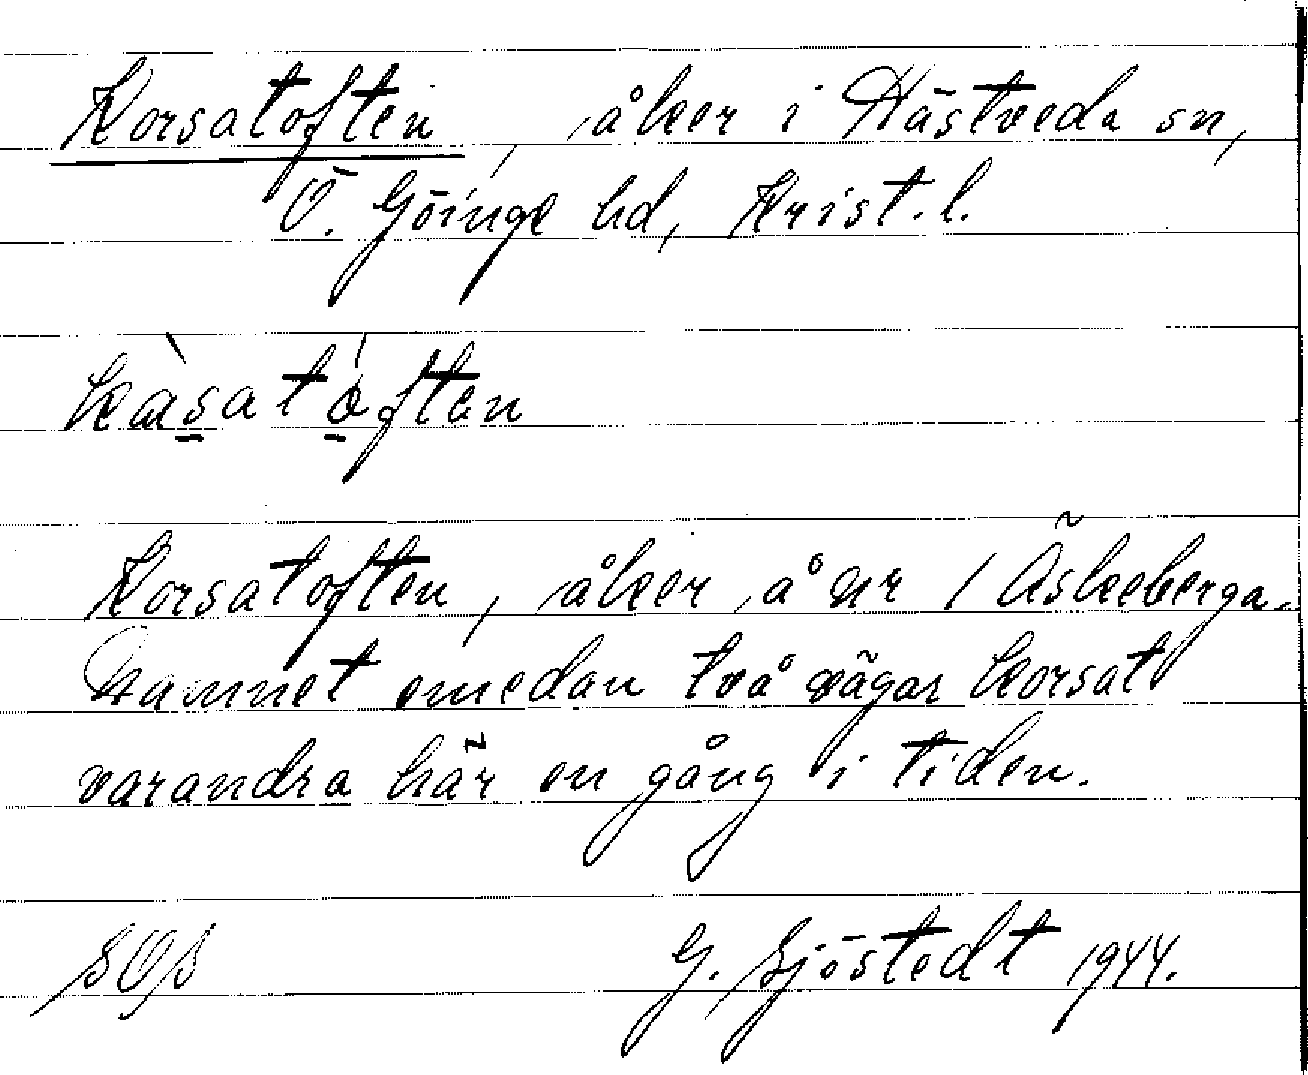 Korsatoften, åker i Hästveda sn,
Ö. Göinge hd, Krist. l.
Korsatoften, åker å nr 1 Äskeberga.
Namnet emedan två vägar korsat
varandra här en gång i tiden.
SOS G. Sjöstedt 1944.